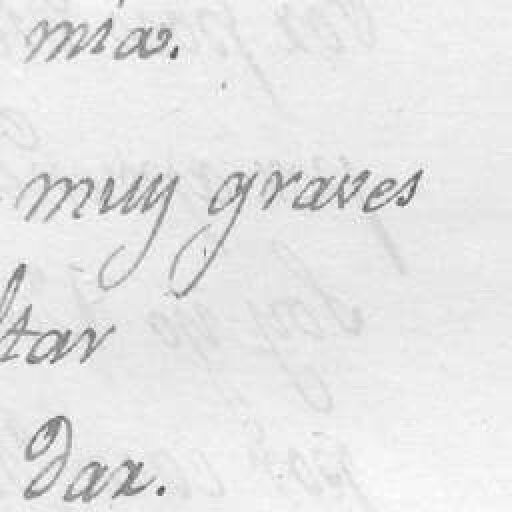 mia.
muy graves
ltar
Dax.